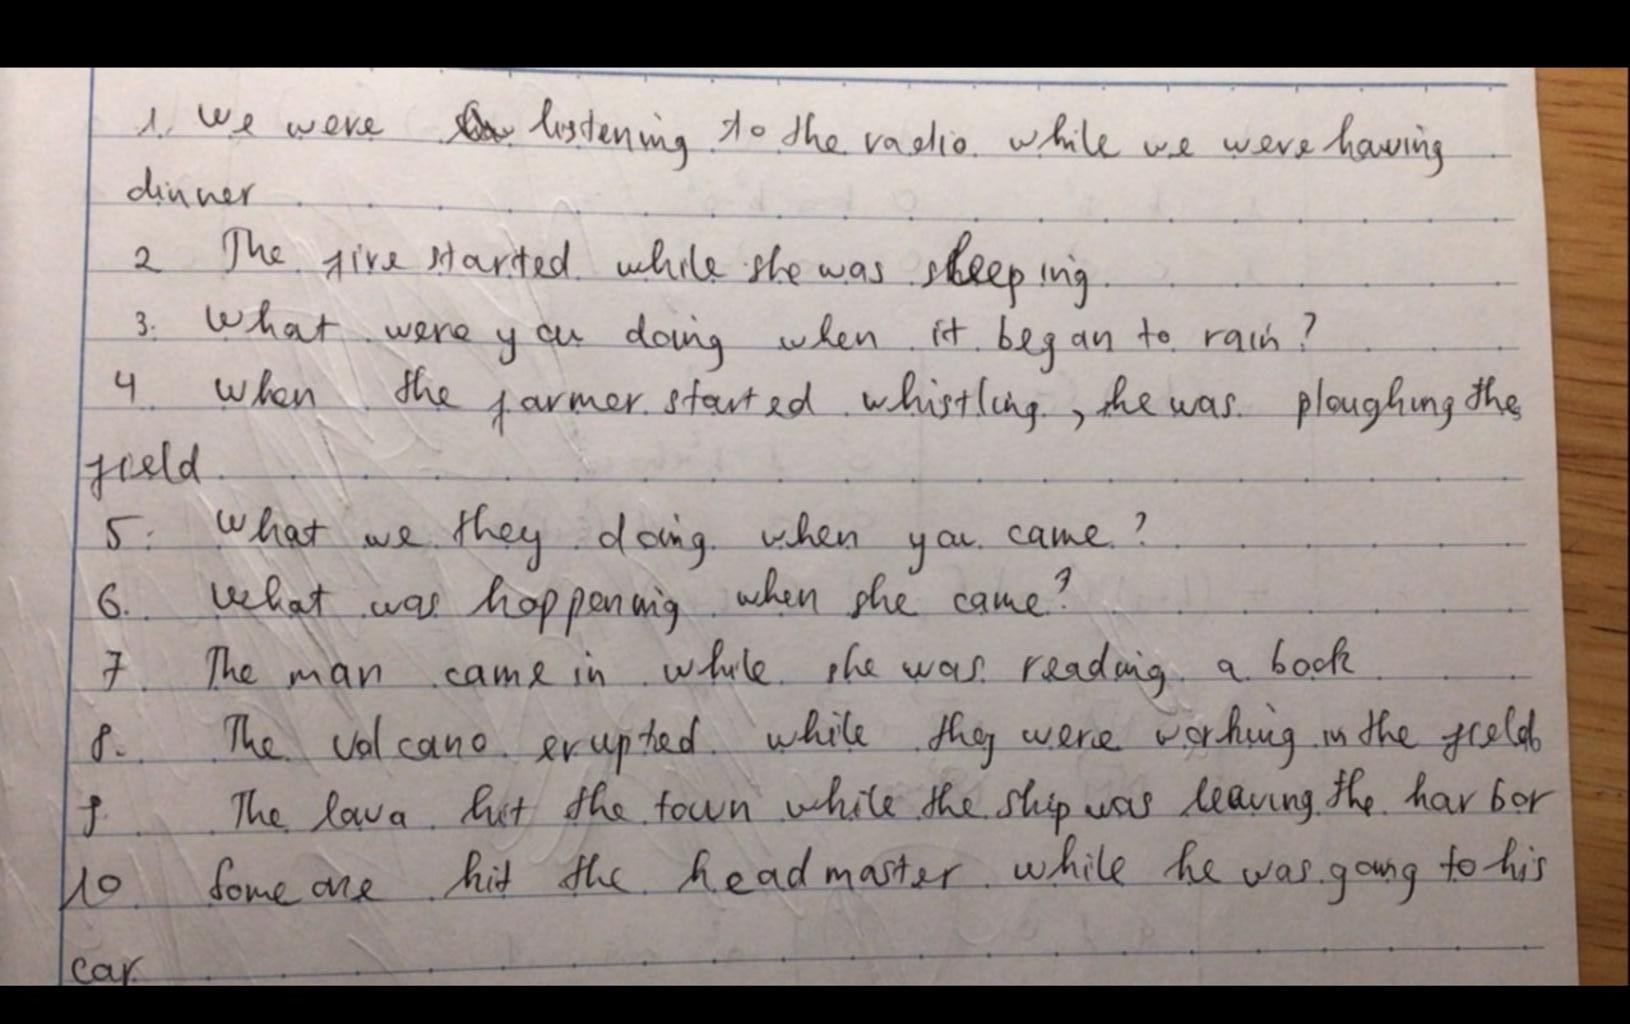 1. We were listening to the radio while we were having
dinner
2 The fire started while she was sleeping
3. What were you doing when it began to rain?
4 When the farmer started whistling, he was ploughing the
field
5. What we they doing when you came?
6. What was happening when she came?
7 The man came in while she was reading a book
8. The volcano erupted while they were working in the field
9 The lava hit the town while the ship was leaving the harbor
10 Some one hit the headmaster while he was going to his
car